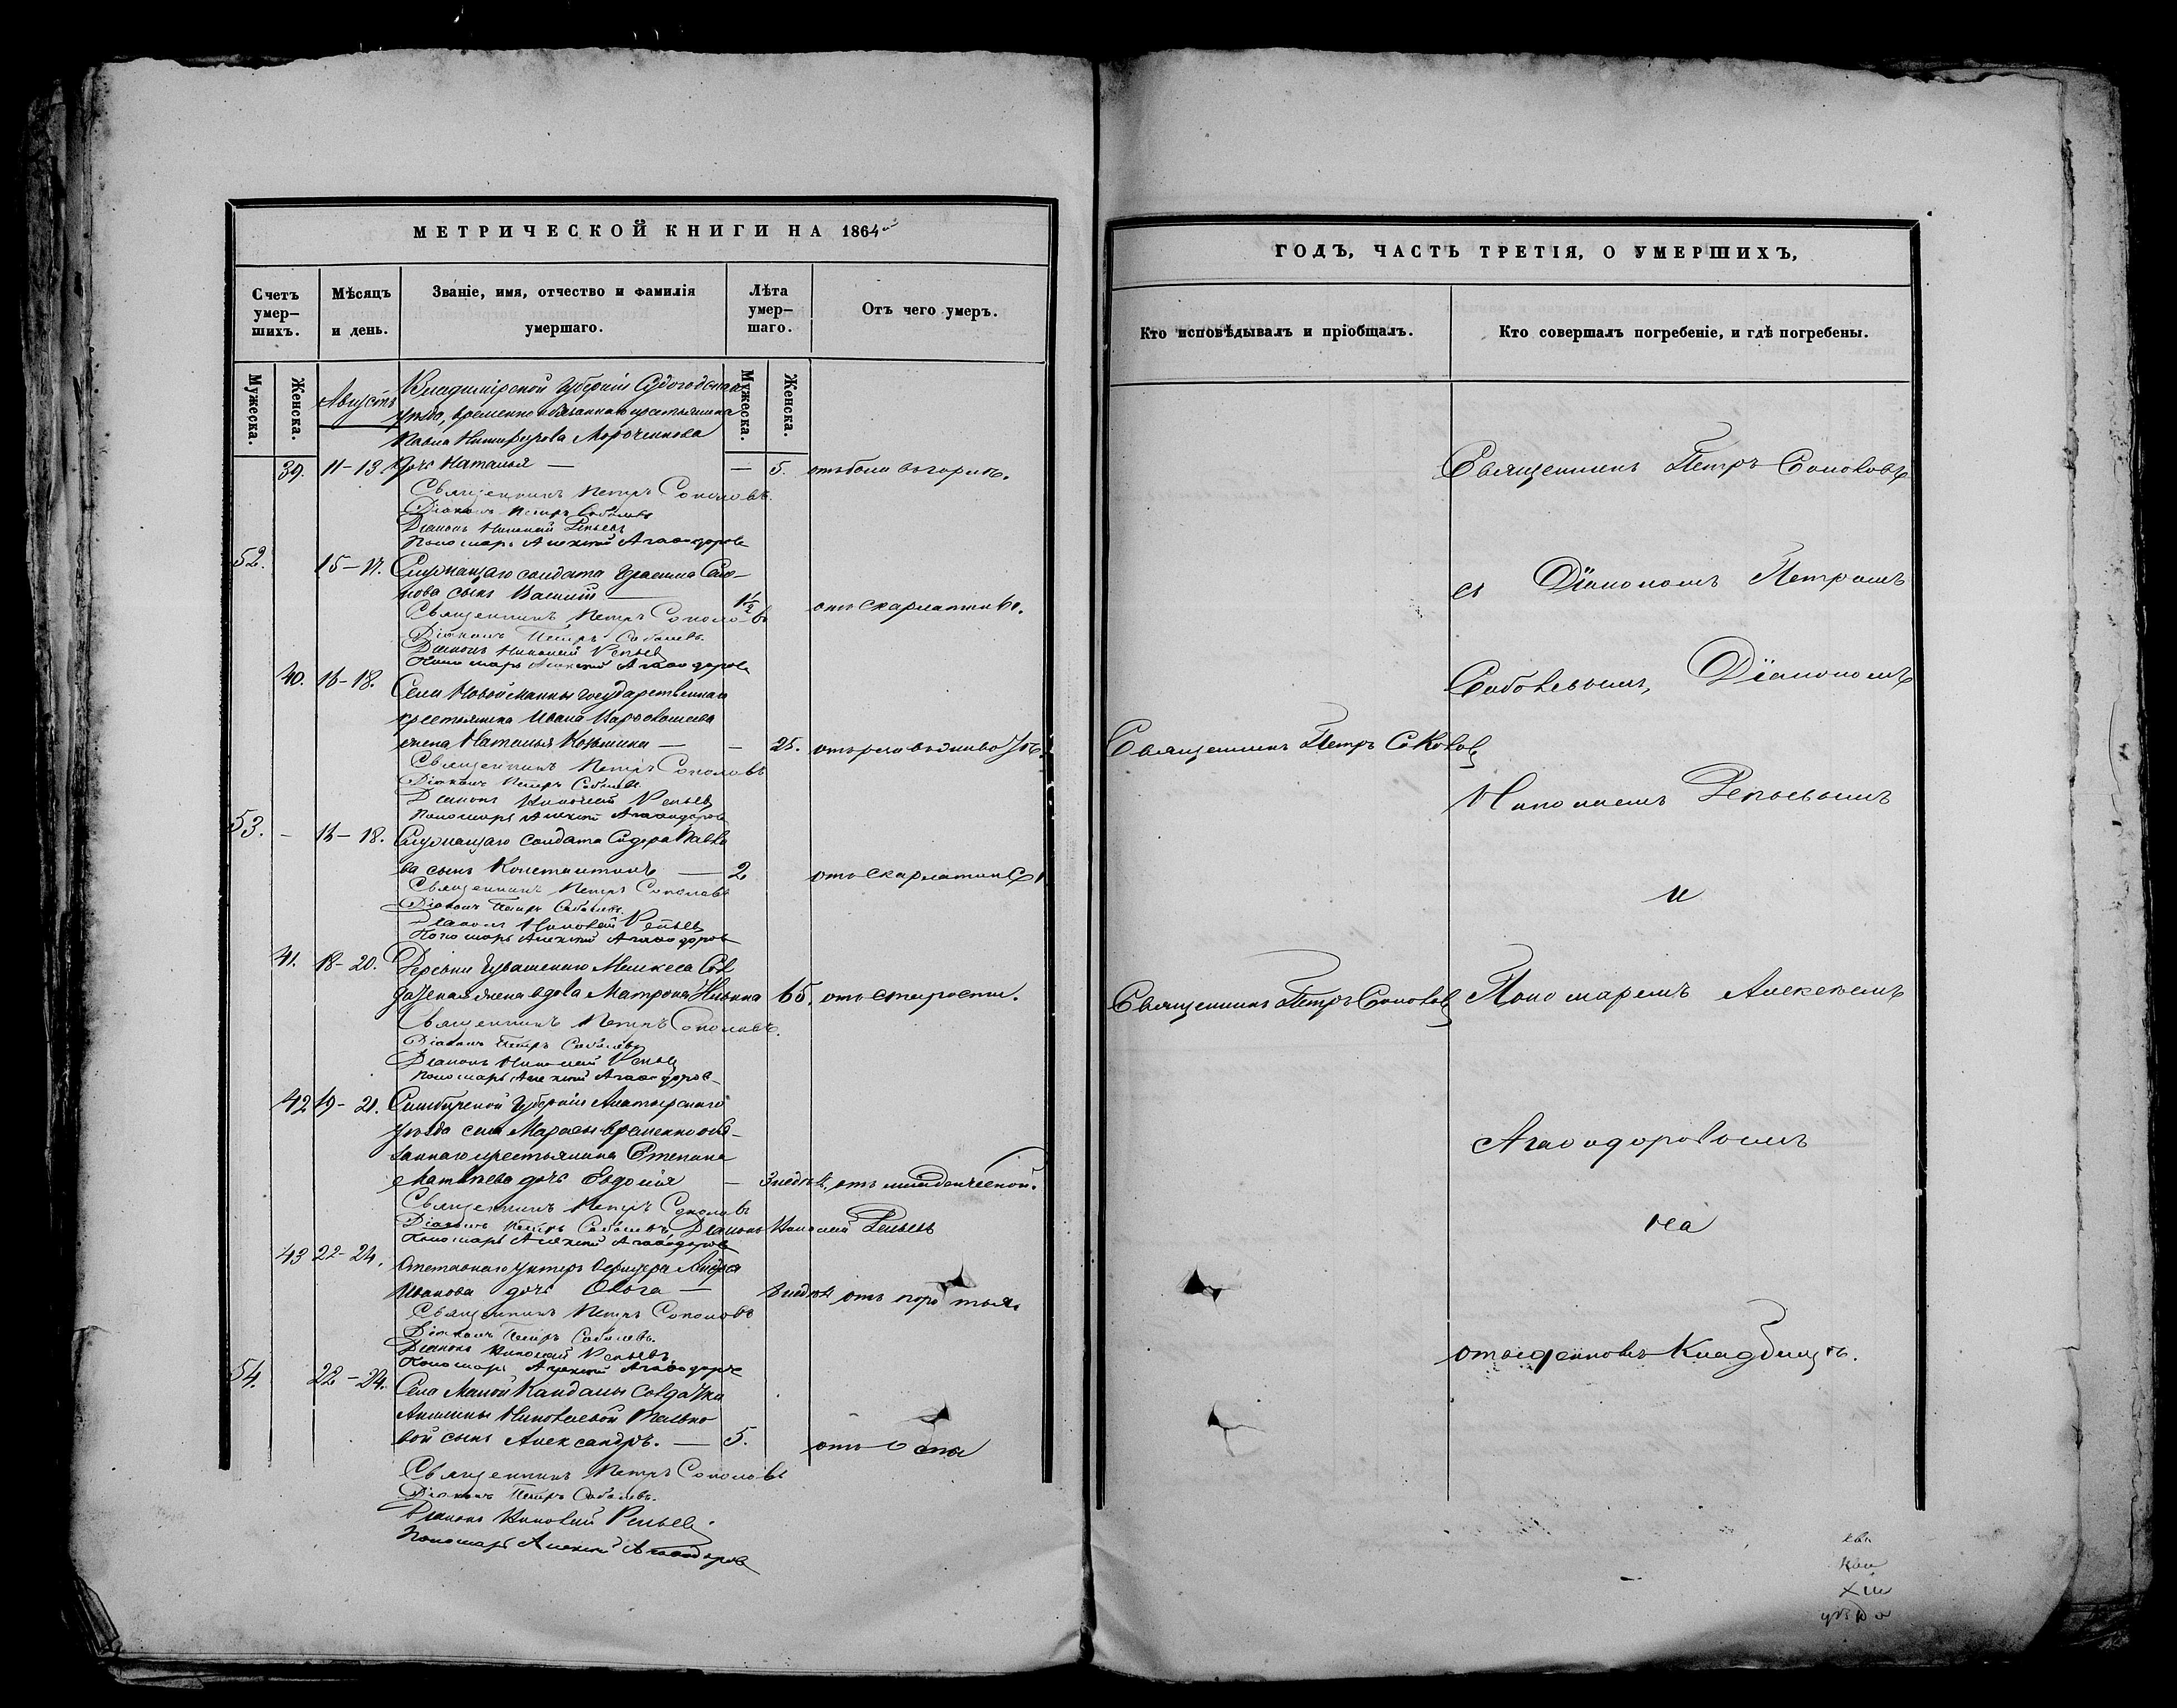 МЕТРИЧЕСКОЙ КНИГИ НА 1864
Счетъ умер–шихъ.
Мѣсяцъ и день.
Званіе, имя, отчество и фамилія умершаго.
Лѣта умер–шаго.
Отъ чего умеръ.
Мужеска.
Женска.
Мужеска.
Женска.
Августъ
Владимірской Губерніи Судогодскаго
уѣзда, временно обязаннаго крестьянина
Павла Никифорова
39. 11–13. дочь Наталья — — 5. отъ боли въ горлѣ.
Священникъ Петръ Соколовъ.
Діаконъ Петръ Соболевъ
Діаконъ Николай Репьевъ
Пономарь Алексѣй Агаѳодоровъ
52. 15–17. Служащаго солдата
сынъ Василій — 1½ отъ скарлатины.
Священникъ Петръ Соколовъ
Діаконъ Петръ Соболевъ.
Діаконъ Николай Репьевъ
Пономарь Алексѣй Агаѳодоровъ
40. 16–18. Села Новой Майны государственнаго
крестьянина Ивана
жена Наталья Козьмина — — 25.
Священникъ Петръ Соколовъ
Діаконъ Петръ Соболевъ.
Діаконъ Николай Репьевъ
Пономарь Алексѣй Агаѳодоровъ
53. – 16–18. Служащаго солдата Сидора Павло
ва сынъ Константинъ — 2 отъ скарлатины
Священникъ Петръ Соколовъ
Діаконъ Петръ Соболевъ.
Діаконъ Николай Репьевъ
Пономарь Алексѣй Агаѳодоровъ
41. 18–20. Деревни Чувашскаго Мелкеса Сол
датская жена вдова Матрона Ильина 65. отъ старости.
Священникъ Петръ Соколовъ.
Діаконъ Петръ Соболевъ
Діаконъ Николай Репьевъ
Пономарь Алексѣй Агаѳодоровъ
42 19–21. Симбирской Губерніи Алатырскаго
уѣзда села временно обя–
заннаго крестьянина Степана
Матвѣева дочь Евдокія — 3 недѣл. отъ младенческой.
Священникъ Петръ Соколовъ
Діаконъ Петръ Соболевъ, Діаконъ Николай Репьевъ
Пономарь Алексѣй Агаѳодоровъ
43 22–24. Отставнаго унтеръ офицера Андрея
Иванова дочь Ольга — 6 недѣл отъ
Священникъ Петръ Соколовъ
Діаконъ Петръ Соболевъ.
Діаконъ Николай Репьевъ
Пономарь Алексѣй Агаѳодоровъ
54. 22–24. Села Малой Кандалы солдатки
Акилины Николаевой
вой сынъ Александръ. — 5. отъ оспы
Священникъ Петръ Соколовъ
Діаконъ Петръ Соболевъ.
Діаконъ Николай Репьевъ
Пономарь Алексѣй Агаѳодоровъ
ГОДЪ, ЧАСТЬ ТРЕТІЯ, О УМЕРШИХЪ,
Кто исповѣдывалъ и пріобщалъ.
Кто совершалъ погребеніе, и гдѣ погребены.
Священникъ Петръ Соколовъ
съ Діакономъ Петромъ
Соболевымъ, Діакономъ
Священникъ Петръ Соколовъ
Николаемъ Репьевымъ
и
Священникъ Петръ Соколовъ
Пономаремъ Алексѣемъ
Агаѳодоровымъ
на
отведенномъ Кладбищѣ.